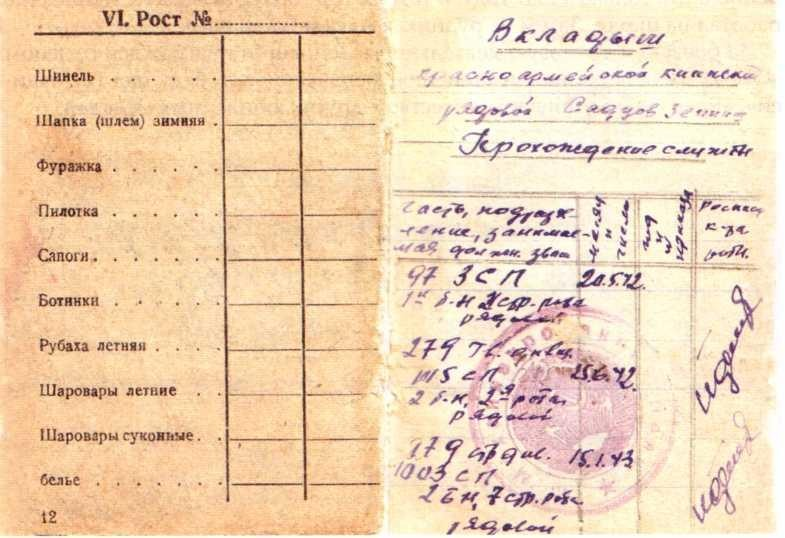 VI. Рост №
Шинель
Шапка (шлем) зимняя
Фуражка
Пилотка
Сапоги
Ботинки
Рубаха летняя
Шаровары летние
Шаровары суконные
белье
12
Вкладыш
красноармейской книжки
рядовой Садцов
Прохождение службы
часть, подразде-
ление, занимае-
мая должн. зван
месяц и число
год
роспись
к-ра
роты.
97 ЗСП 20.5.42.
1й б-н, стр. рота
рядовой
279
1115 СП 25.6.42.
2 б-н, 2я рота,
рядовой
стр. див. 15.1.43.
1003 СП
2 б-н, 7 стр. рота
рядовой